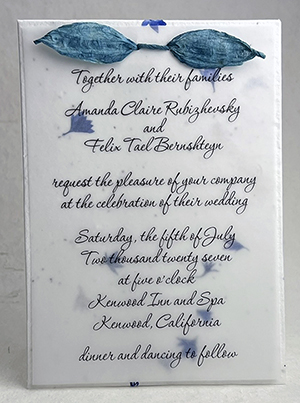 Together with their families
Amanda Claire Rubizhevsky
and
Felix Tael Bernshteyn
request the pleasure of your company
at the celebration of their wedding
Saturday, the fifth of July
Two thousand twenty seven
at five o'clock
Kenwood Inn and Spa
Kenwood, California
dinner and dancing to follow